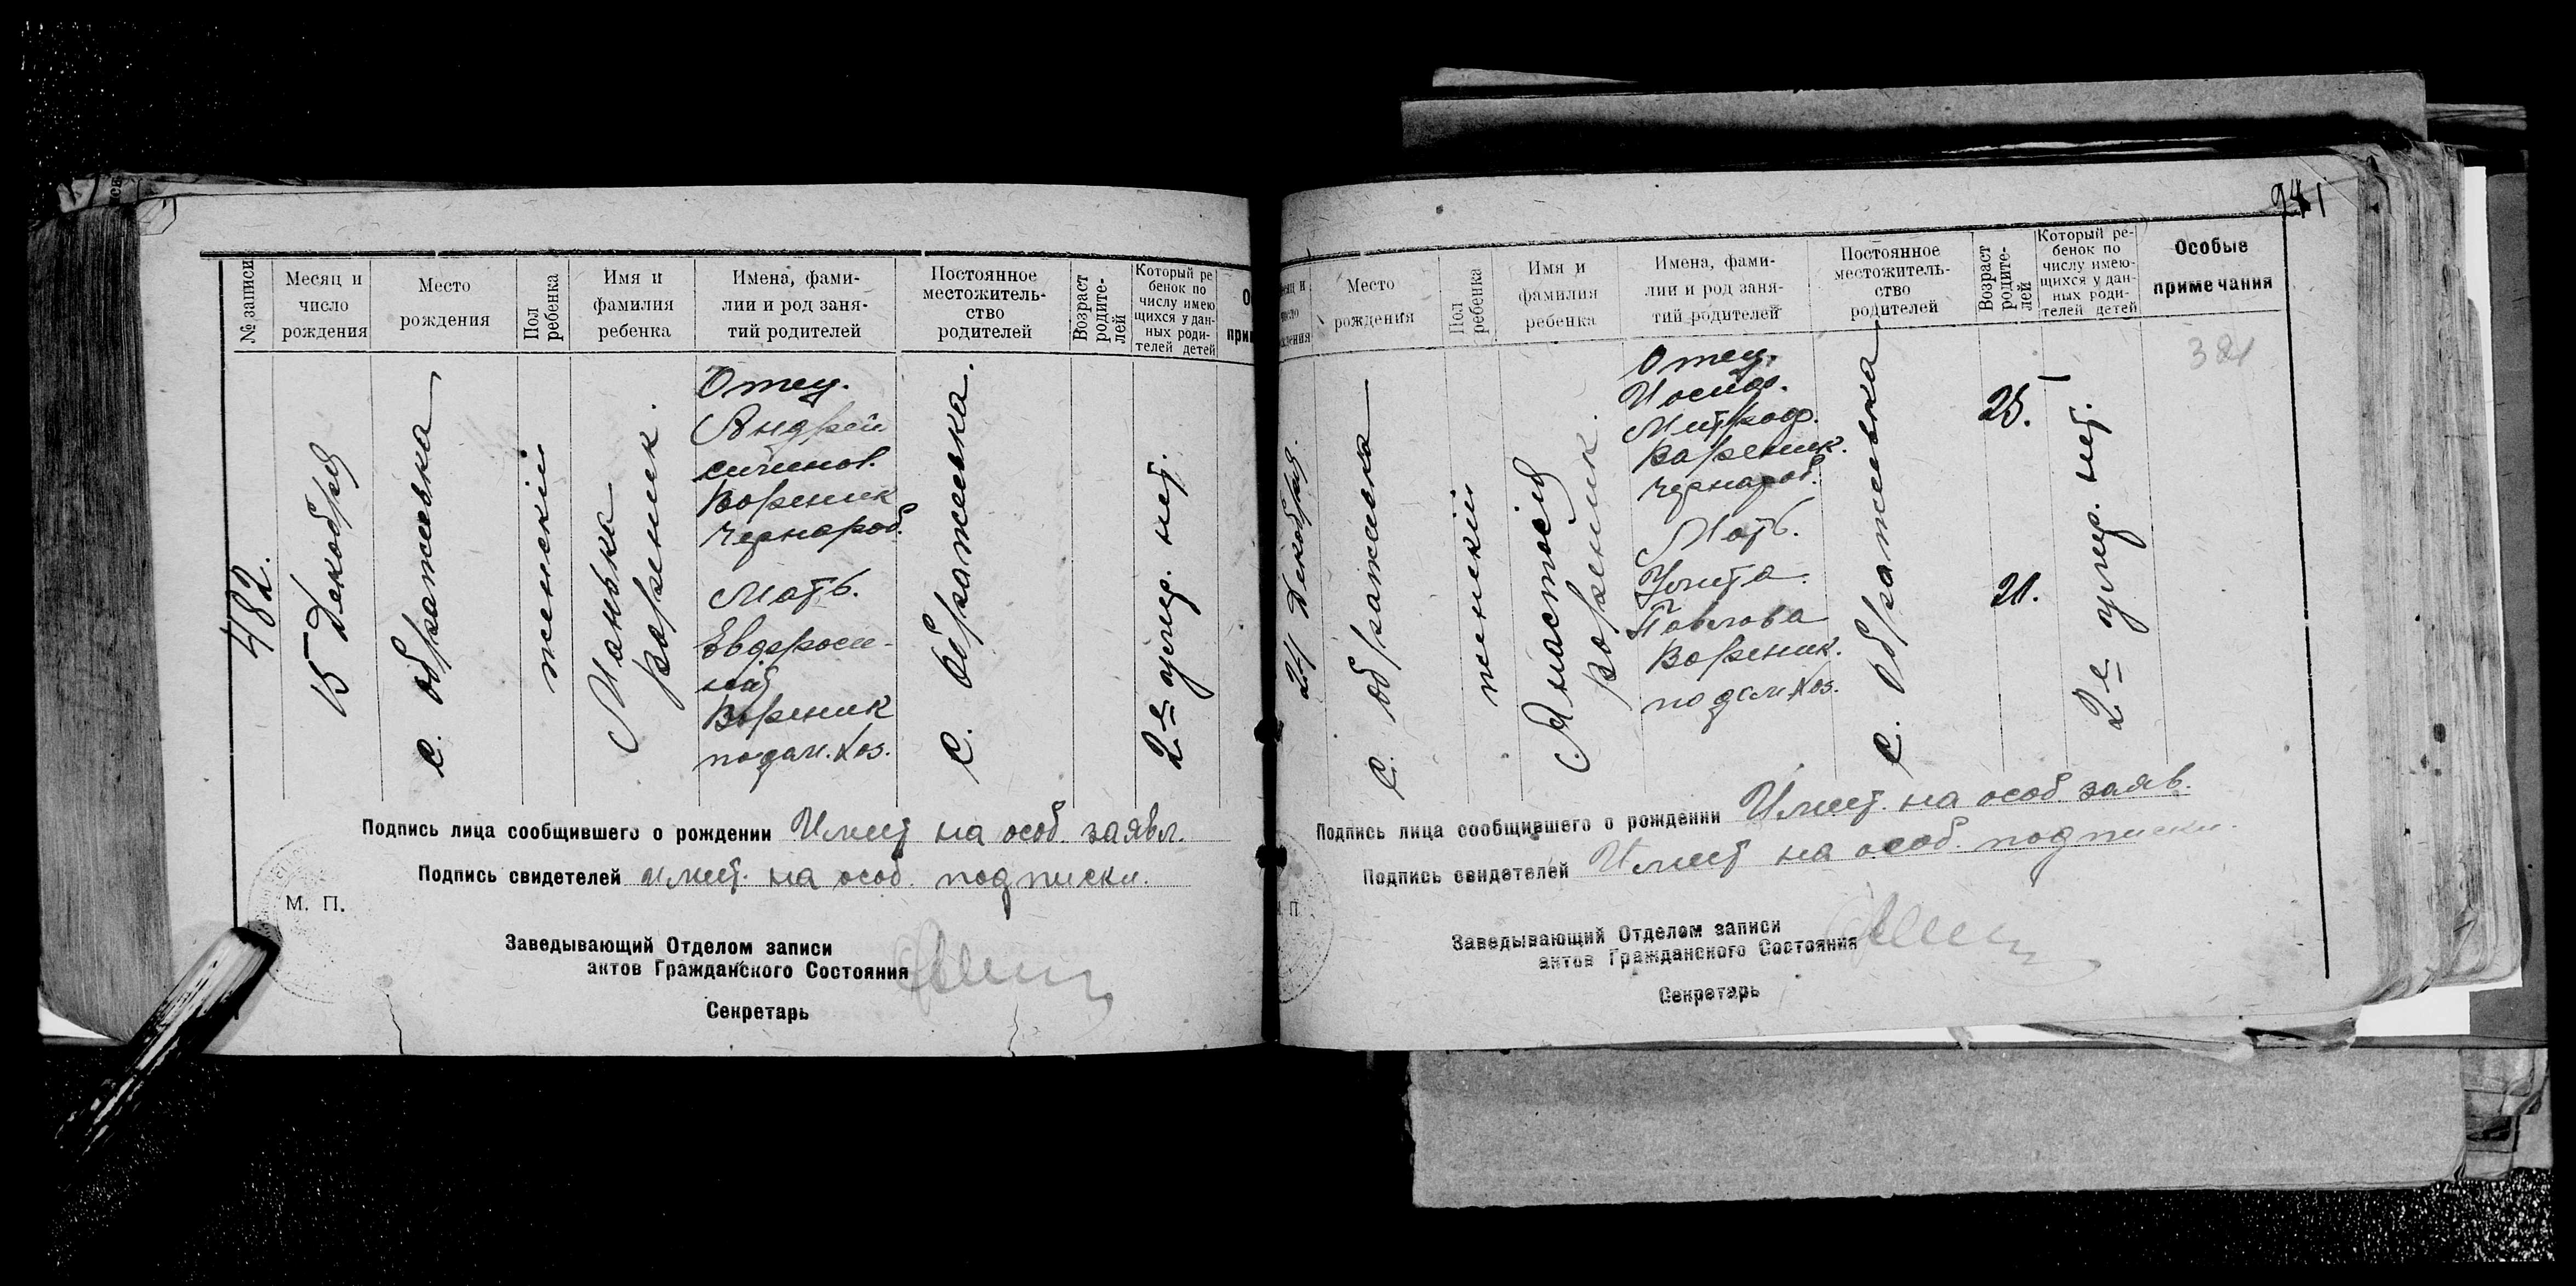 № записи
Месяц и
число
рождения
Место
рождения
Пол
ребенка
Имя и
фамилия
ребенка
Имена, фами-
лии и род заня-
тий родителей
Постоянное
местожитель-
ство
родителей
Возраст
родите-
лей
Который ре
бенок по
числу имею
щихся у дан-
ных роди-
телей детей
482.
15 Декобря
с. ображеевка
женский
Манька
Вореник.
Отец.
Андрей
Вореник
чернароб.
Мать.
Евдороси-
ния
Вореник
подом. хоз.
с. ображеевка.
2-е умер. нет.
Подпись лица сообщившего о рождении Имеет на особ. заявл.
Подпись свидетелей имеет. на особ. подписки.
М. П.
Заведывающий Отделом записи
актов Гражданского Состояния
Секретарь
941
Место
рождения
Пол
ребенка
Имя и
фамилия
ребенка
Имена, фами-
лии и род заня-
тий родителей
Постоянное
местожитель-
ство
родителей
Возраст
родите-
лей
Который ре-
бенок по
числу имею-
щихся у дан-
ных роди-
телей детей
Особые
примечания
24 Декобря.
с. ображеевка
женский
Анастосия
Вореник.
Отец.
Иосиф.
Митроф.
Вареник.
чернароб.
Мать.
Улита.
Павлова
Вореник.
по дом. хоз.
с. Ображеевка
25.
21.
2-е умер. нет.
Подпись лица сообщившего о рождении Имеет. на особ. заяв.
Подпись свидетелей Имеет на особ. подписки.
П
Заведывающий Отделом записи
актов Гражданского Состояния
Секретарь